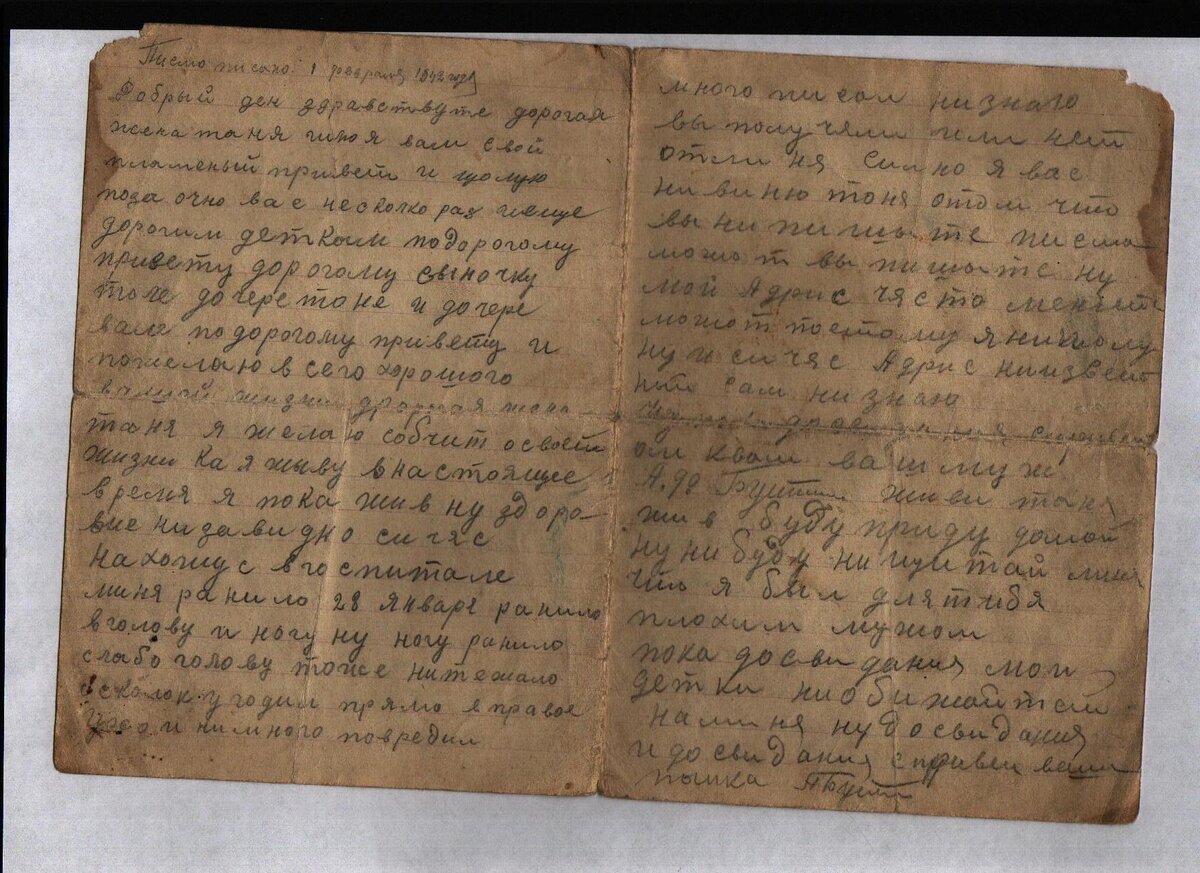 Писмо писано 1 февраля 1942 года
Добрый ден здравствуте дорогая
жена таня шлю я вам свой
пламеный привет и целую
поза очно вас несколко раз ивеще
дорогим деткам подорогому
привету дорогому сыночку
толе дочере тане и дочере
вале подорогому привету и
пожелаю всего хорошого
вашей жизни дорогая жена
таня я желаю собчит освоей
жизни ка я жыву внастоящее
время я пока жив ну здоро-
вие низавидно сичяс
нахожус вгоспитале
миня ранило 28 января ранило
вголову и ногу ну ногу ранило
слабо голову тоже нитежало
осколок угодил прямо вправое
ухо и нимного повредил
много писал низнаю
вы получяли или нет
отми ня силно я вас
нивиню таня отом что
вынипишыте писма
можот выпишыте ну
мой Адрис чясто меняет
можот поетому яничиому
ну и сичяс Адрис ниизвест
ний сам низнаю
ам квам ваш муж
живи таня
жив буду приду домой
ну нибуду нищитай миня
что я был длятибя
плохим мужом
пока досвидания мои
детки ниобижайтес
намння ну досвидания
и досвидания справет ваш
папка